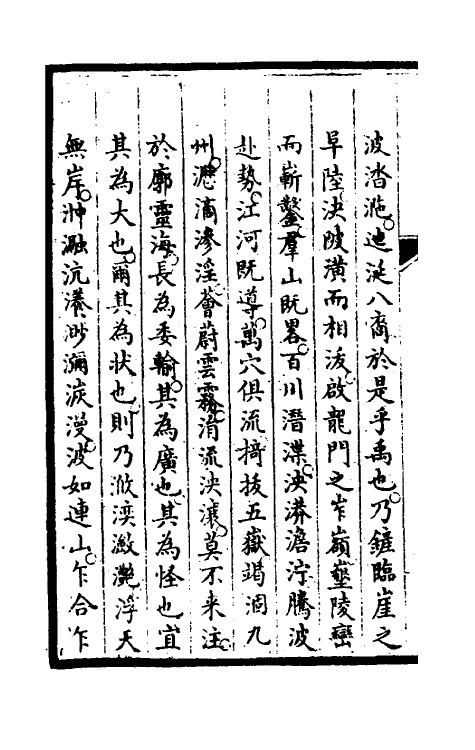 波沓湤。迆涎八裔於是乎禹也。乃鏟臨崖之
阜陸決陂潢而相沷。啟龍門之岝嶺墾陵巒
而嶄鑿。羣山既畧。百川潛渫。泱漭澹濘騰波
赴勢。江河既導。萬穴俱流掎拔五嶽竭涸九
州。瀝滴滲淫薈蔚雲霧。涓流泱瀼。莫不来注。
於廓靈海。長為委輸。其為廣也。其為怪也宜
其為大也。爾其為狀也。則乃浟湙瀲灔浮天
無岸。沖瀜沆瀁渺瀰湠漫。波如連山。乍合乍